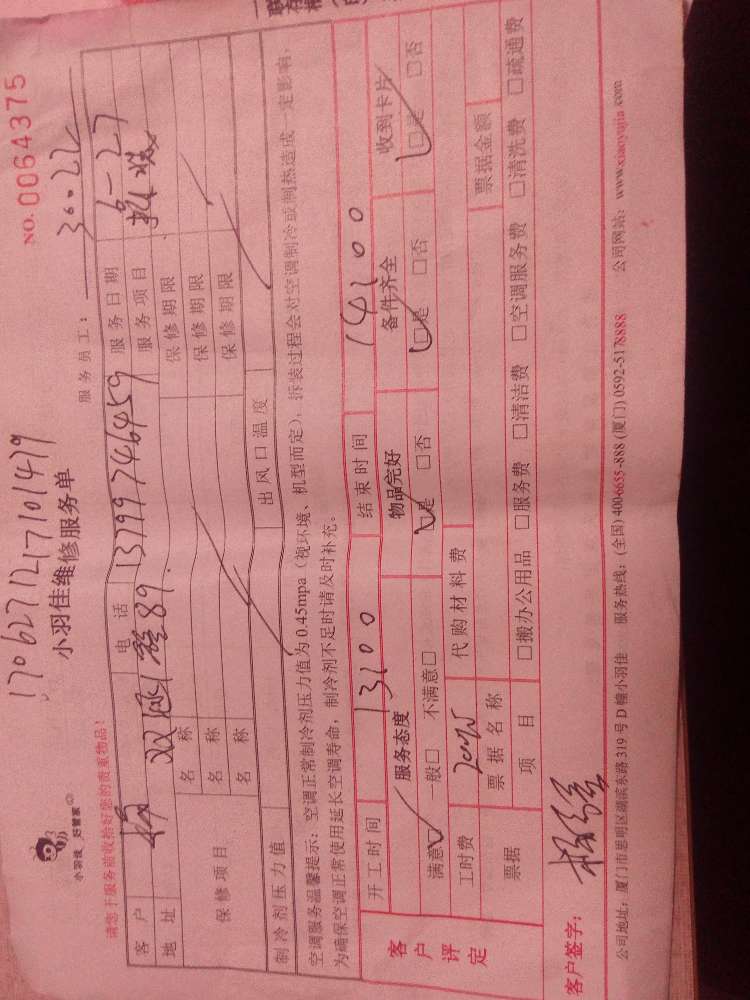 1706271217101479
NO.0064375
小羽佳 好管家
小羽佳维修服务单
请您于服务前收拾好您的贵重物品！
服务员工： 30.22
客户 杨 电话 13799746459 服务日期 6-27
地址 服务项目
保修项目 名称 保修期限
名称 保修期限
名称 保修期限
制冷剂压力值 出风口温度
空调服务温馨提示：空调正常制冷剂压力值为0.45mpa（视环境、机型而定），拆装过程会对空调制冷或制热造成一定影响，
为确保空调正常使用延长空调寿命，制冷剂不足时请及时补充。
开工时间 13:00 结束时间 14:00
客户评定 服务态度 物品完好 备件齐全 收到卡片
满意☑ 一般□ 不满意□ ☑是 □否 ☑是 □否 ☑是 □否
工时费 代购材料费
票据 票据名称 票据金额
项目 □搬办公用品 □服务费 □清洁费 □空调服务费 □清洗费 □疏通费
客户签字：
公司地址：厦门市思明区湖滨东路319号D幢小羽佳 服务热线：(全国)400-6655-888 (厦门)0592-5178888 公司网站：www.xiaoyujia.com